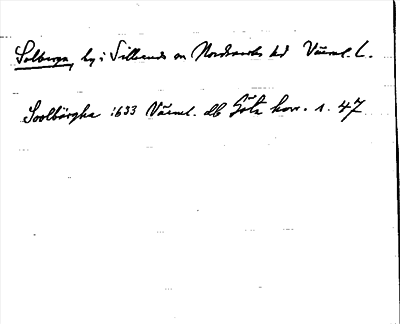 Solberga, by i Silleruds sn Nordmarks hd Värml. L.
Soolbärgha 1633 Värml. db Göta hovr. s. 47